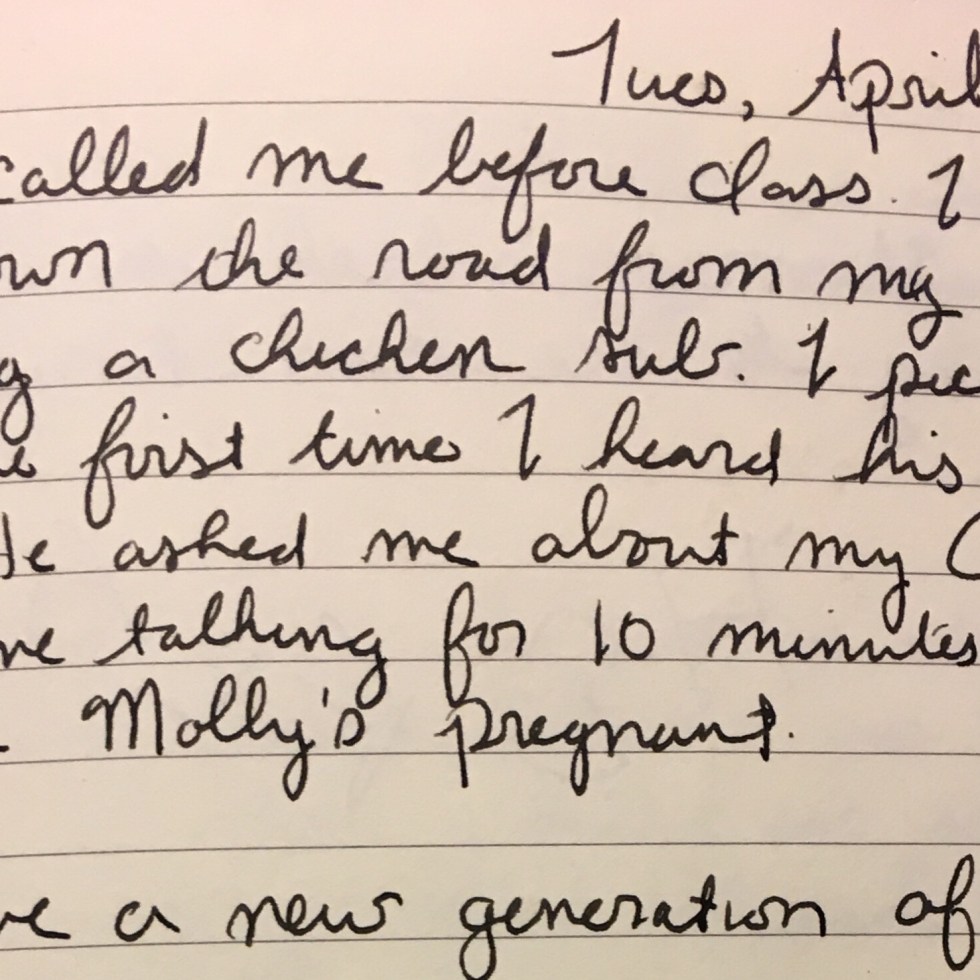 Tues, April
called me before class. I
own the road from my
g a chicken sub. I pic
e first time I heard his
He asked me about my C
me talking for 10 minutes
. Molly's pregnant.
ve a new generation of